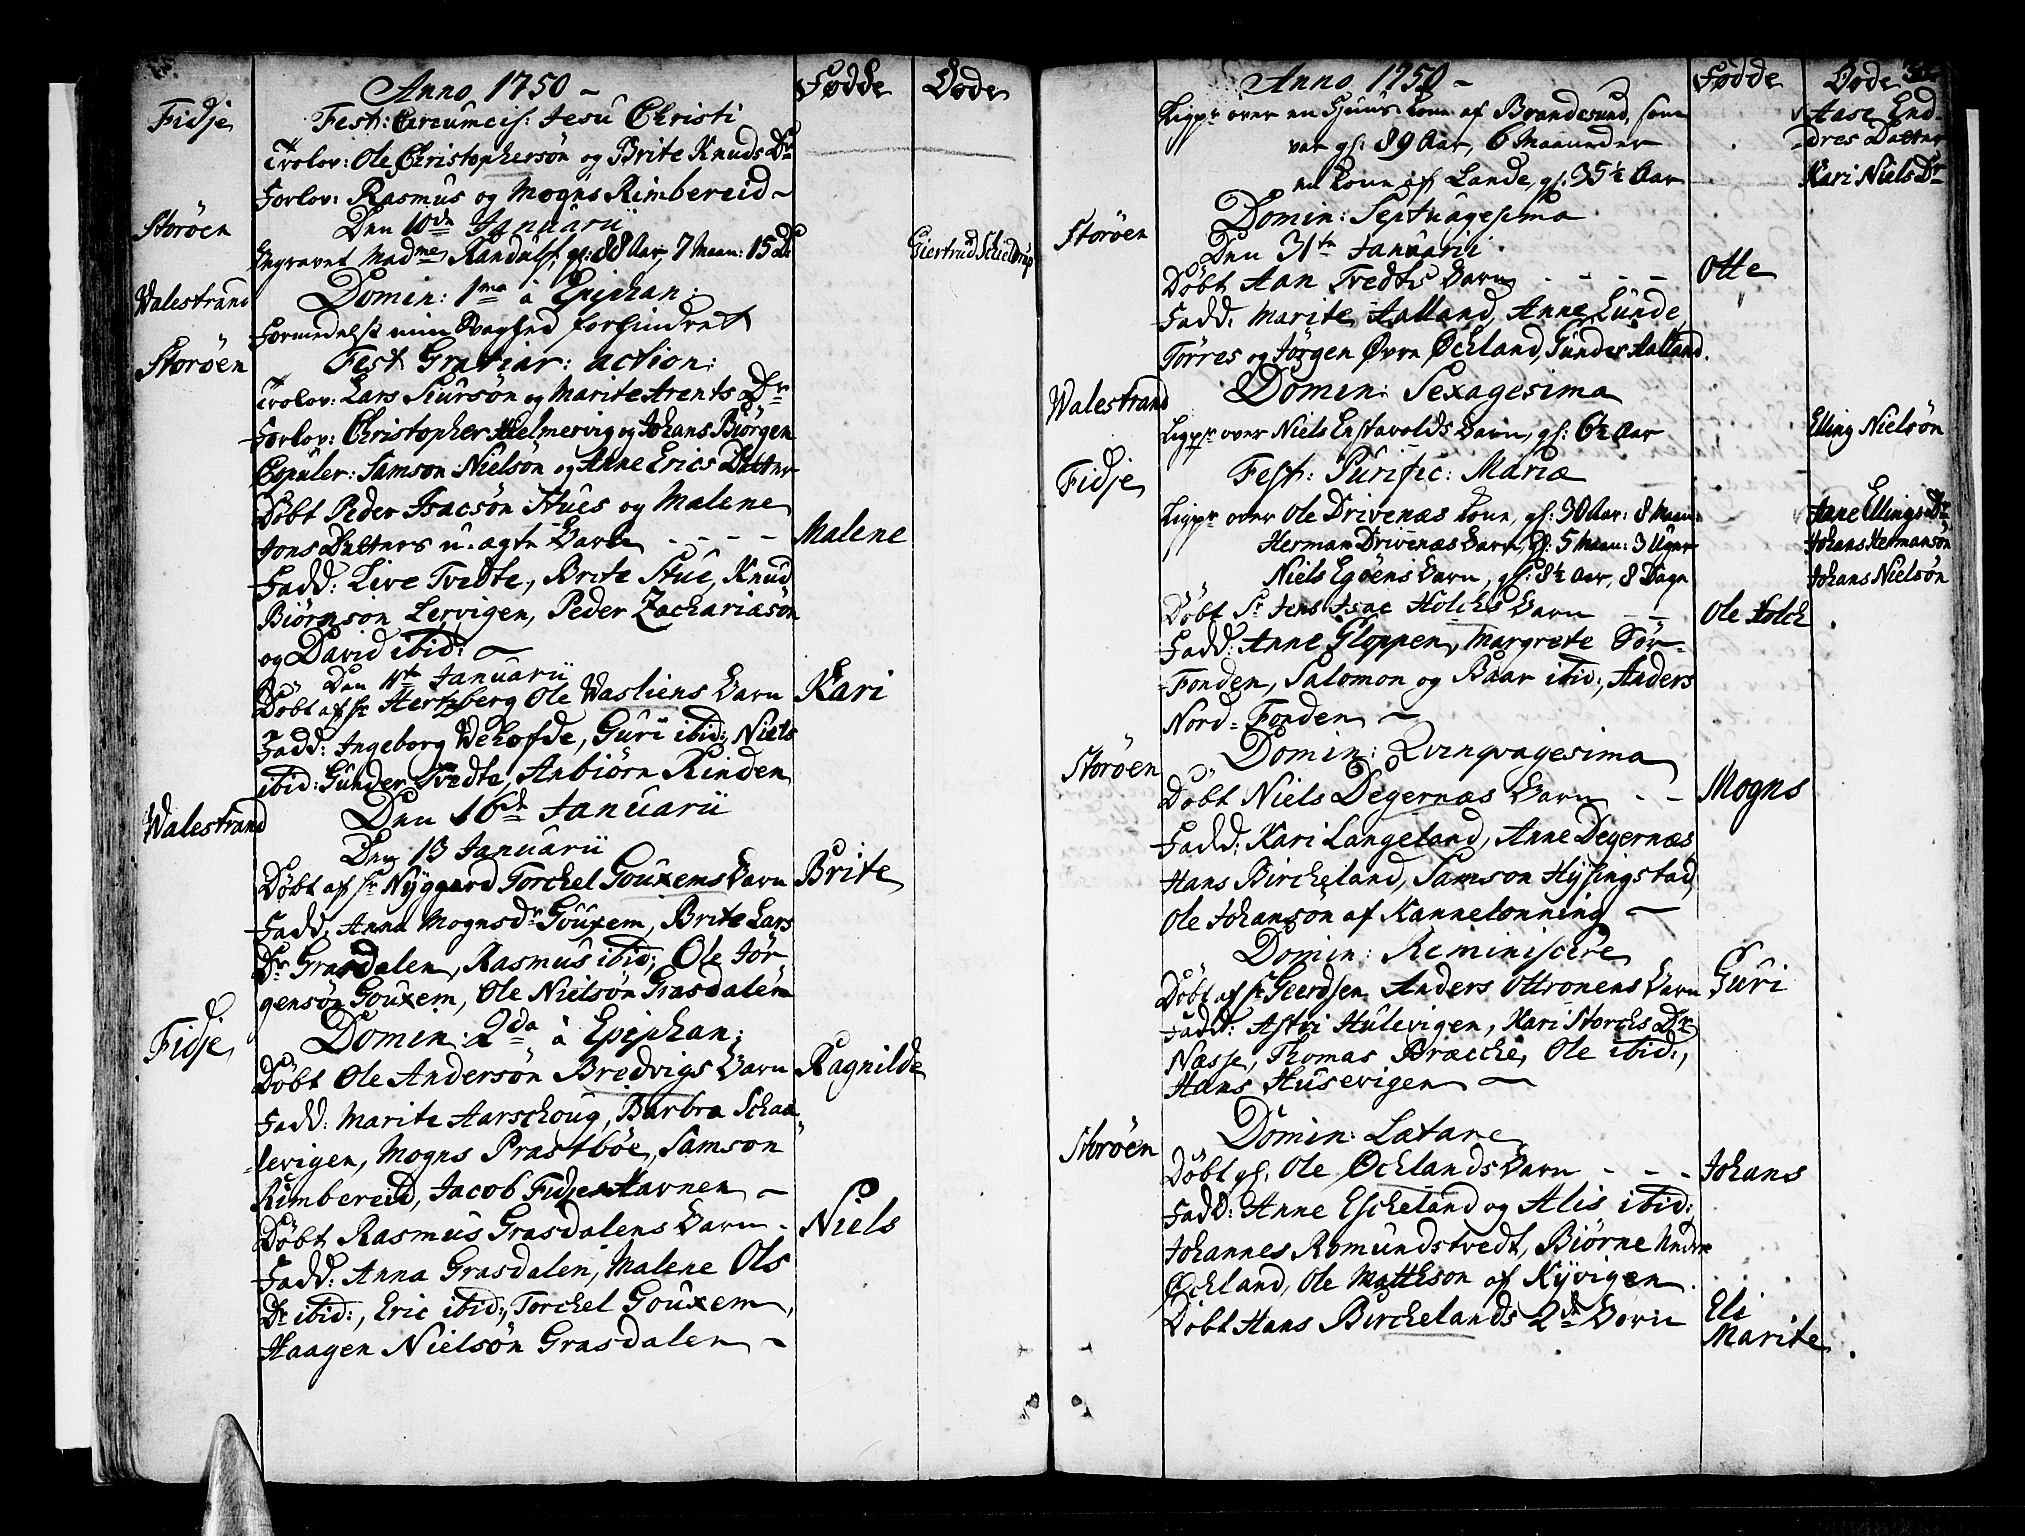 Anno 1750 – Fødde Døde
Fidje Fest: Circumcis: Jesu Christi
Trolov: Ole Christophersøn og Brite Knuds Dr
Forlov: Rasmus og Mogns Rimbereid –
Storøen Den 10de Januarii
Engravet Madme Randulf, gl: 88 Aar, 7 Maan: 15 D: Giertrud Schieldrup
Walestrand Domin: 1ma à Epiphan:
Formedelst min Svaghed forhindret
Storøen Fest Gratiar: action:
Trolov: Lars Siursøn og Marite Arents Dr
Forlov: Christopher Helmervig og Johans Biørgen
Copuler: Samson Nielsøn og Anne Erics Datter
Døbt Peder Isacsøn Stues og Malene
Jons Datters u-ægte Barn - - - - Malene
Fadd: Live Tvedte, Brite Stue, Knud
Biørnson Lervigen, Peder Zachariasøn
og David ibid: –
Den 11te Januarii
Døbt af Hr Hertzberg Ole Wasliens Barn Kari
Fadd: Ingeborg Wehofde, Guri ibid:, Niels
ibid: Gunder Tvedte, Anbiørn Rinden
Walestrand Den 16de Januarii
Den 13 Januarii
Døbt af Hr Nyggard Torchel Gouxems Barn Brite
Fadd: Anna Mognsdr Gouxem, Brite Lars
Dr Grasdalen, Rasmus ibid:, Ole Jør
gensøn Gouxem, Ole Nielsøn Grasdalen
Fidje Domin: 2da à Epiphan:
Døbt Ole Andersøn Bredvigs Barn Ragnilde
Fadd: Marite Aarschoug, Barbra Schaa
levigen, Mogns Præstbøe, Samson
Rimbereid, Jacob Fidje Havnen –
Døbt Rasmus Grasdalens Barn - Niels
Fadd: Anna Grasdalen, Malene Ols
Dr ibid:, Eric ibid:, Torchel Gouxem,
Haagen Nielsøn Grasdalen –
Anno 1750 – Fødde Døde
Ligpr over en Huus Kone af Brandesund, som Aase End-
var gl: 89 Aar, 6 Maaneder dres Datter
en Kone af Lande, gl: 35½ Aar Kari Niels Dr
Domin: Septuagesima
Storøen Den 31te Januarii
Døbt Aan Tvedts Barn - - - - Otte
Fadd: Marite Aalland, Anne Lunde
Tørres og Jørgen Øvre Øcland, Gunder Aalland.
Walestrand Domin: Sexagesima
Ligpr over Niels Enstavolds Barn, gl: 6½ Aar Elling Nielsøn
Fidje Fest: Purific: Mariæ
Ligpr over Ole Drivenæs Kone, gl: 30 Aar: 8 Maan: Anne Ellings Dr
Herman Drivenæs Barn, gl: 5 Maan: 3 Uger Johans Hermansøn
Niels Egøens Barn, gl: 8½ Aar, 8 Dage Johans Nielsøn
Døbt Sr Jens Isac Holchs Barn Ole Holch
Fadd: Anne Gloppen, Margrete Sør-
Fonden, Salomon og Baar ibid:, Anders
Nord-Fonden –
Storøen Domin: Qvinqvagesima
Døbt Niels Degernæs Barn - - Mogns
Fadd: Kari Langeland, Anne Degernæs
Hans Bircheland, Samson Hysingstad
Ole Johansøn af Kannelønning –
Domin: Reminiscere
Døbt af Hr Geerdsen Anders Ottronens Barn Guri
Fadd: Astri Hulevigen, Kari Storchs Dr
Næsse, Thomas Bræche, Ole ibid:,
Hans Husevigen –
Storøen Domin: Lætare
Døbt gl: Ole Øchlands Barn - - - Johans
Fadd: Anne Escheland og Alis ibid:
Johannes Romundstvedt, Biørne Nedre
Øchland, Ole Mattheson af Nyvigen.
Døbt Hans Birchelands 2de Børn Eli
Marite